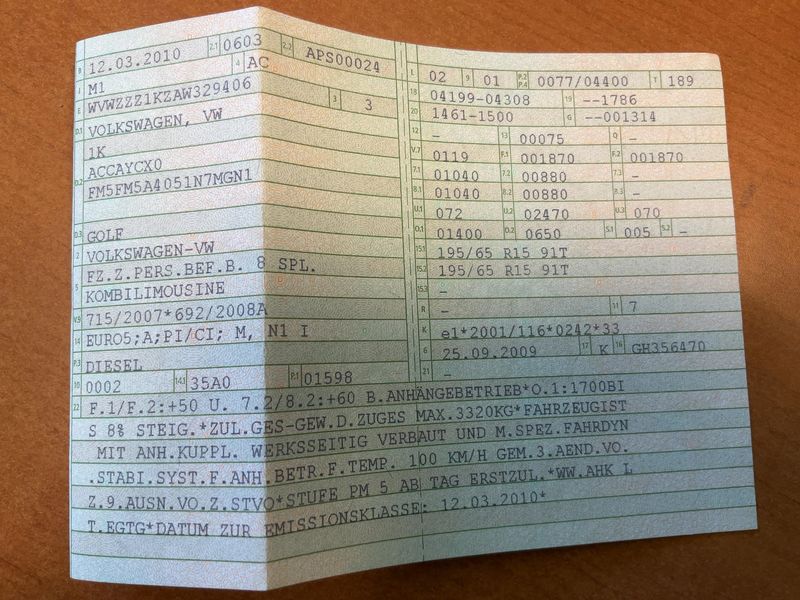 B 12.03.2010 2.1 0603 2.2 APS00024
J M1 4 AC
E WVWZZZ1KZAW329406 3 3
D.1 VOLKSWAGEN, VW
1K
D.2 ACCAYCX0
FM5FM5A4051N7MGN1
D.3 GOLF
2 VOLKSWAGEN-VW
5 FZ.Z.PERS.BEF.B. 8 SPL.
KOMBILIMOUSINE
V.9 715/2007*692/2008A
14 EURO5;A;PI/CI; M, N1 I
P.3 DIESEL
10 0002 14.1 35A0 P.1 01598
L 02 9 01 P.2 P.4 0077/04400 T 189
18 04199-04308 19 --1786
20 1461-1500 G --001314
12 - 13 00075 Q -
V.7 0119 F.1 001870 F.2 001870
7.1 01040 7.2 00880 7.3 -
8.1 01040 8.2 00880 8.3 -
U.1 072 U.2 02470 U.3 070
O.1 01400 O.2 0650 S.1 005 S.2 -
15.1 195/65 R15 91T
15.2 195/65 R15 91T
15.3 -
R - 11 7
K e1*2001/116*0242*33
6 25.09.2009 17 K 16 GH356470
21 -
22 F.1/F.2:+50 U. 7.2/8.2:+60 B.ANHÄNGEBETRIEB*O.1:1700BI
S 8% STEIG.*ZUL.GES-GEW.D.ZUGES MAX.3320KG*FAHRZEUGIST
MIT ANH.KUPPL. WERKSSEITIG VERBAUT UND M.SPEZ.FAHRDYN
.STABI.SYST.F.ANH.BETR.F.TEMP. 100 KM/H GEM.3.AEND.VO.
Z.9.AUSN.VO.Z.STVO*STUFE PM 5 AB TAG ERSTZUL.*WW.AHK L
T.EGTG*DATUM ZUR EMISSIONSKLASSE: 12.03.2010*